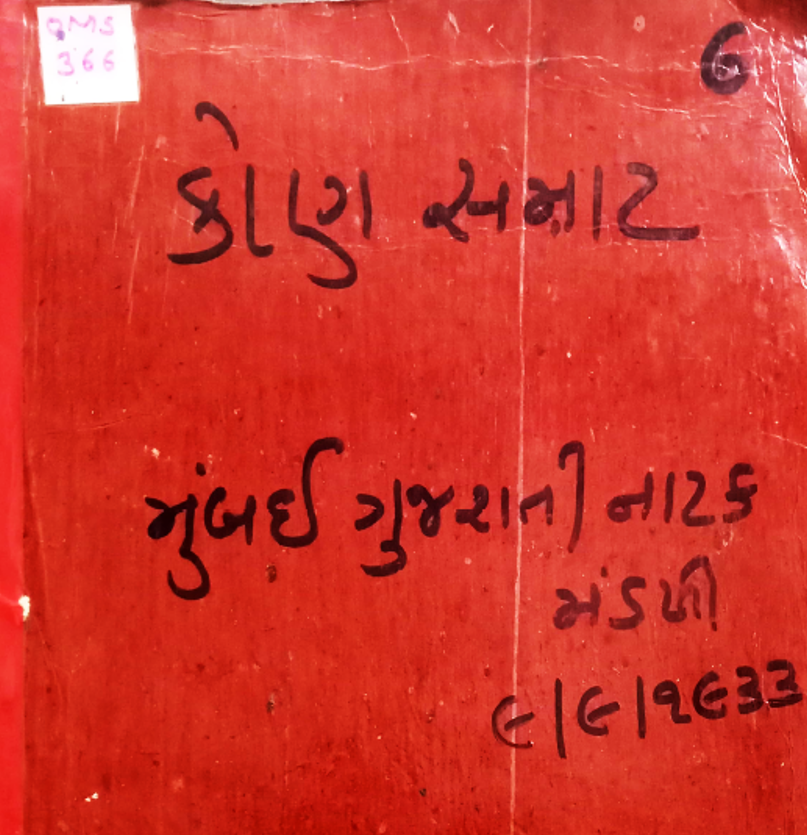 QMS
366
6
કોણ સમ્રાટ
મુંબઈ ગુજરાતી નાટક
મંડળી
૯/૯/૧૯૩૩